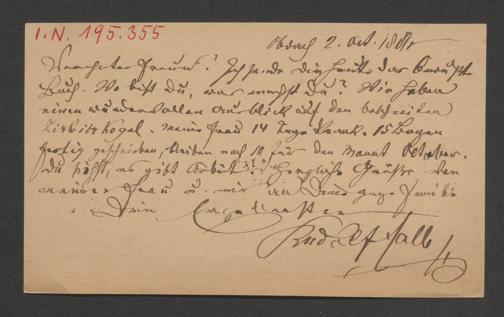 I.N. 195.355
2. Oct. 188
Verehrter Freund! Ich sende Dir heute das
Buch. Wo bist Du, was machst Du? Wir haben
einen wundervollen Ausblick auf den beschneiten
Zirbitzkogel. Meine Frau 14 Tage krank. 15 Bogen
fertig geschrieben, bleiben noch 10 für den Monat October.
Du siehst, es gibt Arbeit. Herzliche Grüße von
meiner Frau u. mir an Deine ganze Familie
Dein
Rudolf Falb